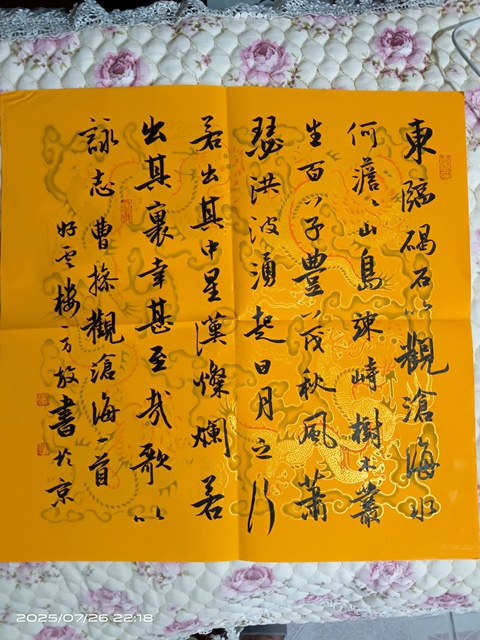 東臨碣石以觀滄海水
何澹〻山島竦峙樹木叢
生百草豐茂秋風蕭
瑟洪波湧起日月之行
若出其中星漢燦爛若
出其裏幸甚至哉歌以
詠志曹操觀滄海一首
好雲樓一書於京
2025/07/26 22:18